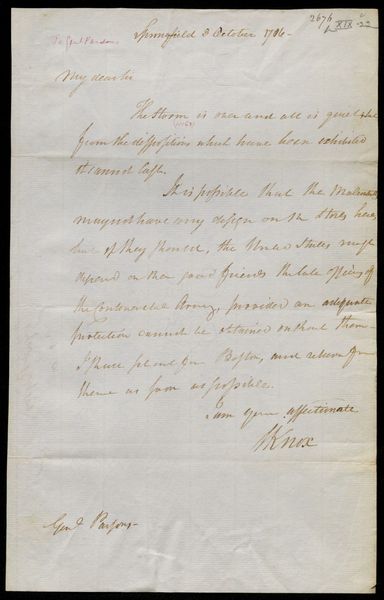 2676
XIX
22
To Genl Parsons
Springfield 3 October 1786-
My dear sir
The Storm is over and all is quiet but
from the dispositions which have been exhibited
it cannot last.
It is possible that the Malcontents
may not have any design on the Stores here,
but if they should, the United States must
depend on their good friends the late officers of
the Continental Army, provided an adequate
protection cannot be obtained without them
I shall set out for Boston, and return from
thence as soon as possible.
I am your affectionate
HKnox
Genl Parsons-